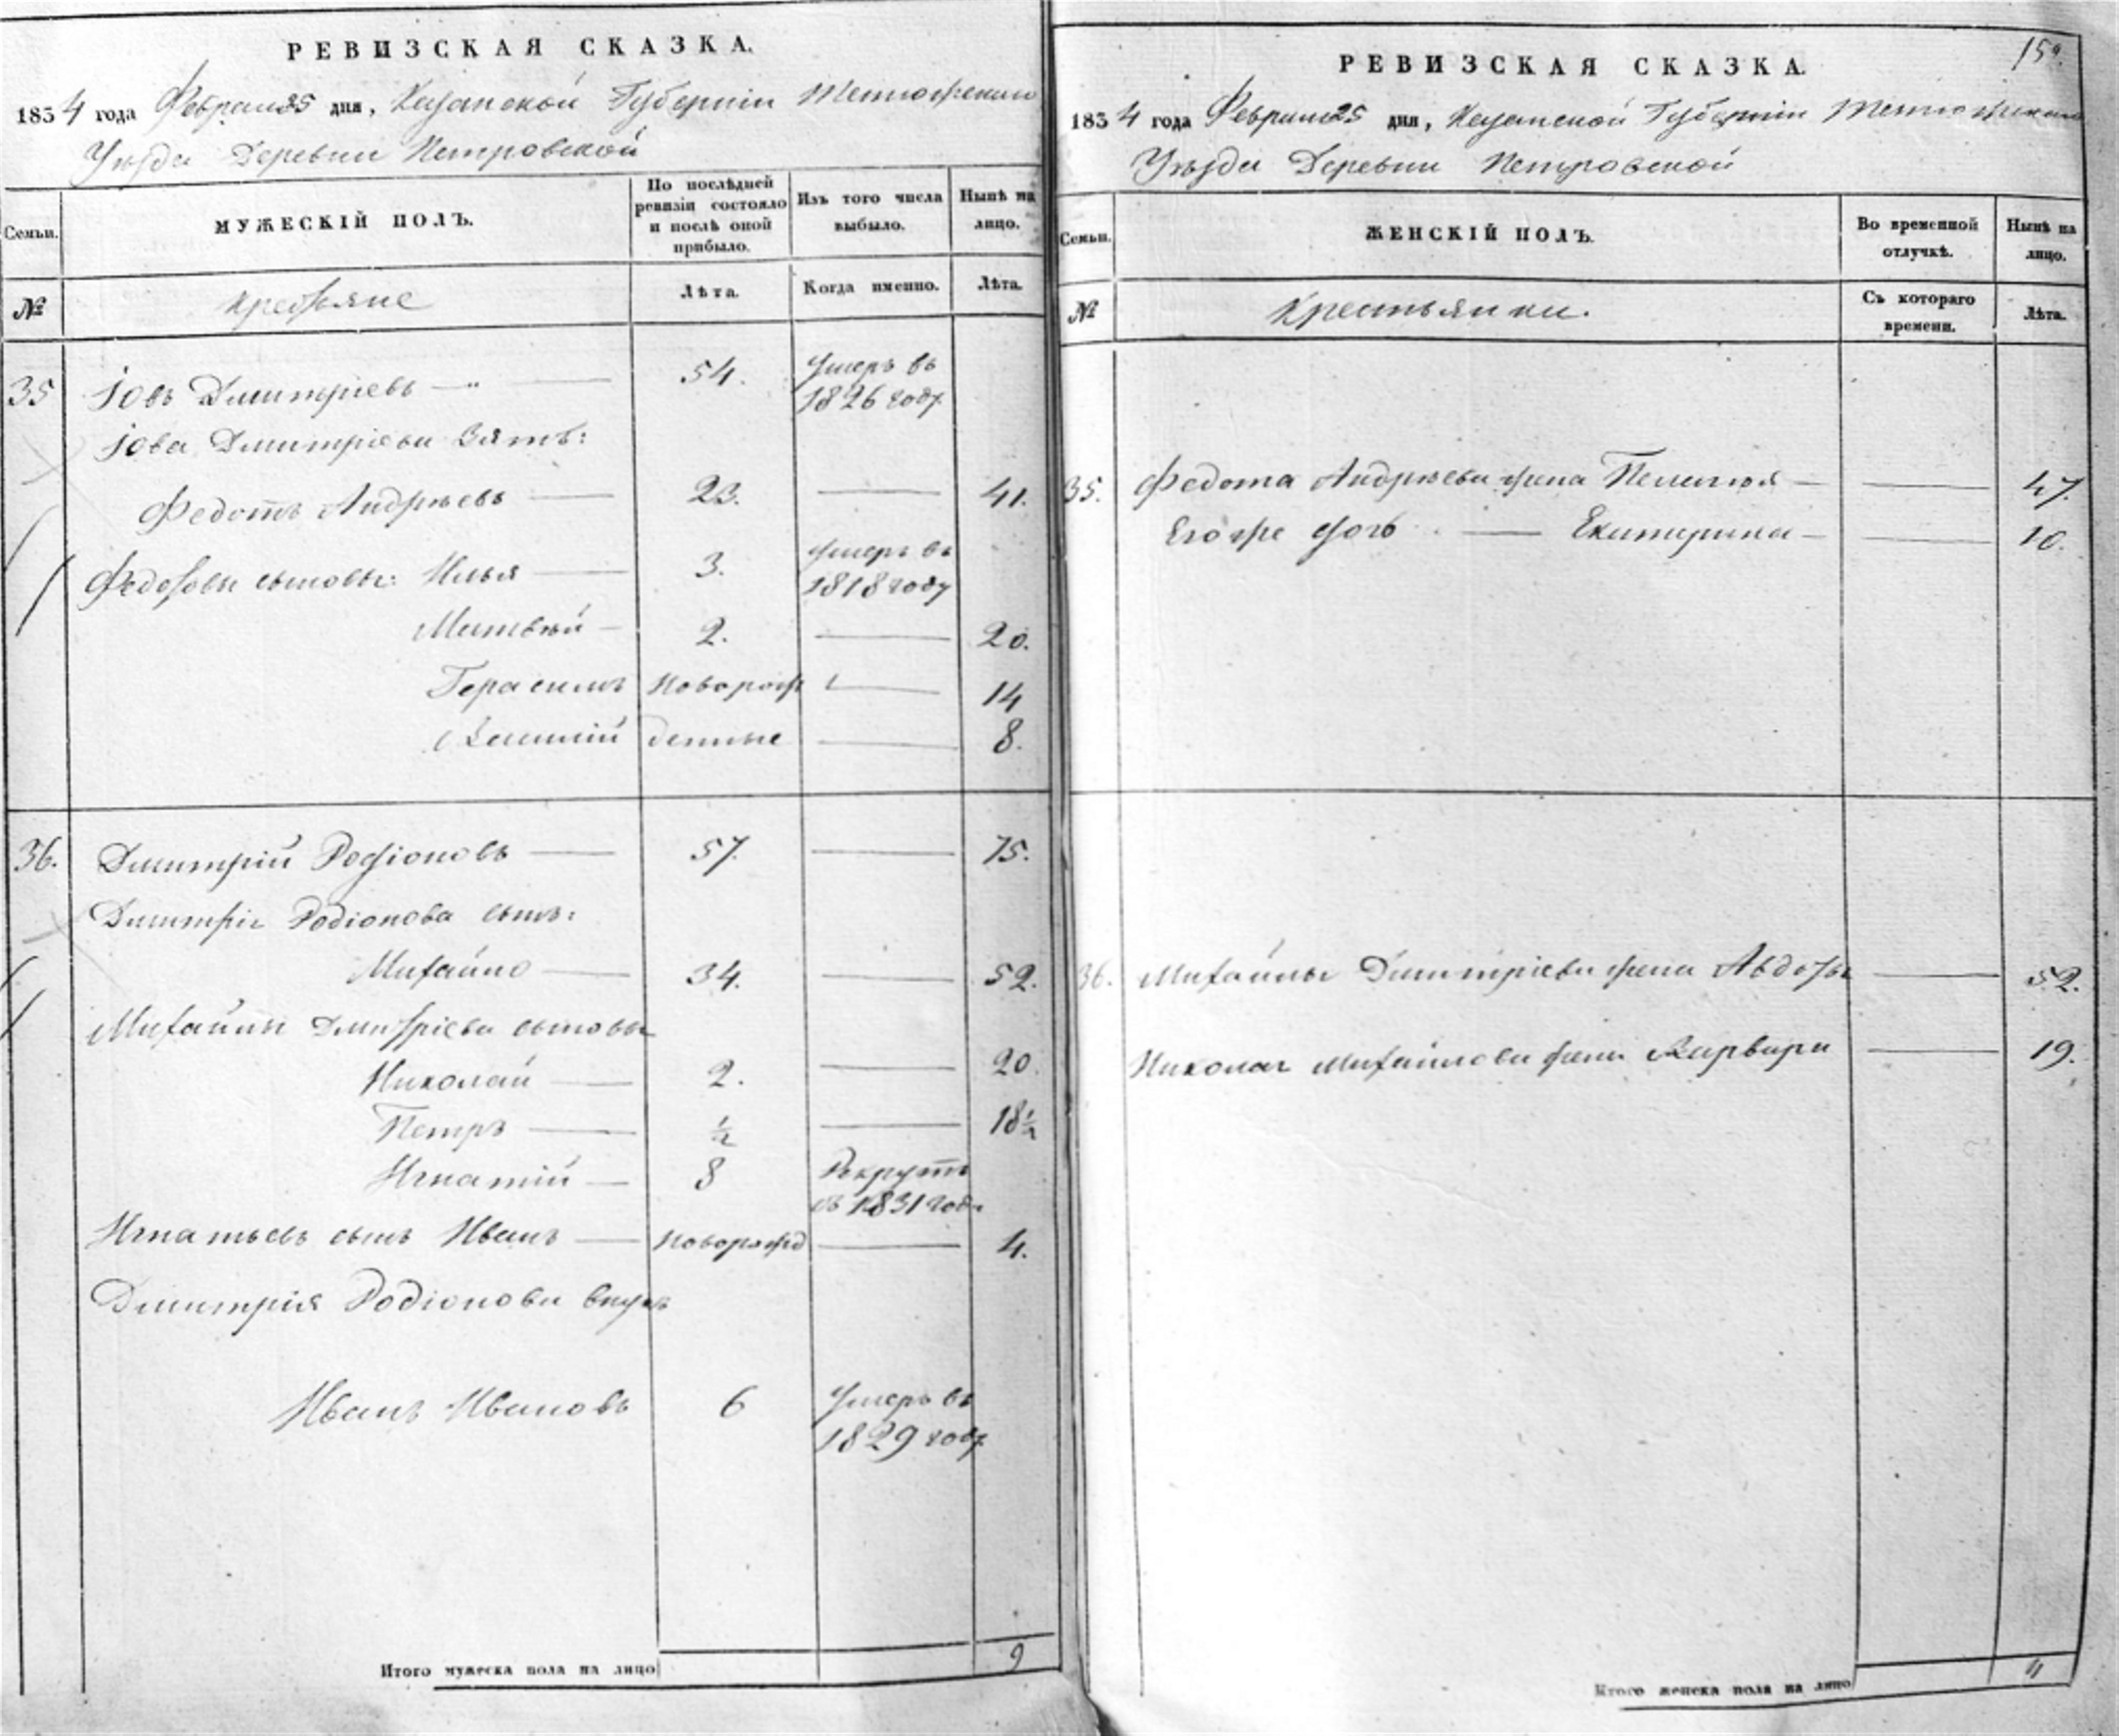 РЕВИЗСКАЯ СКАЗКА.
1834 года Февраля 25 дня, Казанской Губернiи
Уѣзда Деревни Петровской
Семьи.
МУЖЕСКІЙ ПОЛЪ.
По послѣдней ревизіи состояло и послѣ оной прибыло.
Изъ того числа выбыло.
Нынѣ на лицо.
№
Крестьяне
Лѣта.
Когда именно.
Лѣта.
35 Іовъ Дмитріевъ — 54. Умеръ въ 1826 году
Іова Дмитріева Зять:
Федотъ Андреевъ — 23. — 41.
Федотовы сыновья: Илья — 3. Умеръ въ 1818 году
Матвѣй — 2. — 20.
Герасимъ Новорож — 14
Василій денные — 8.
36. Дмитрій Родіоновъ — 57. — 75.
Дмитрія Родіонова сынъ:
Михайло — 34. — 52.
Михайлы Дмитріева сыновья
Николай — 2. — 20.
Петръ — ½ — 18½
Игнатій — 8 Рекрутъ въ 1831 году
Игнатьевъ сынъ Иванъ — Поворожд — 4.
Дмитрія Родіонова внукъ
Иванъ Ивановъ 6 Умеръ въ 1829 году
Итого мужеска пола на лицо 9
РЕВИЗСКАЯ СКАЗКА.
1834 года Февраля 25 дня, Казанской Губерніи
Уѣзда Деревни Петровской
Семьи.
ЖЕНСКІЙ ПОЛЪ.
Во временной отлучкѣ.
Нынѣ на лицо.
№
Крестьянки.
Съ котораго времени.
Лѣта.
35. Федота Андреева жена Пелагея — 47.
Его же дочь — Екатерина — 10.
36. Михайлы Дмитріева жена Авдотья — 52.
Николая Михайлова жена Варвара — 19.
Итого женска пола на лицо 4